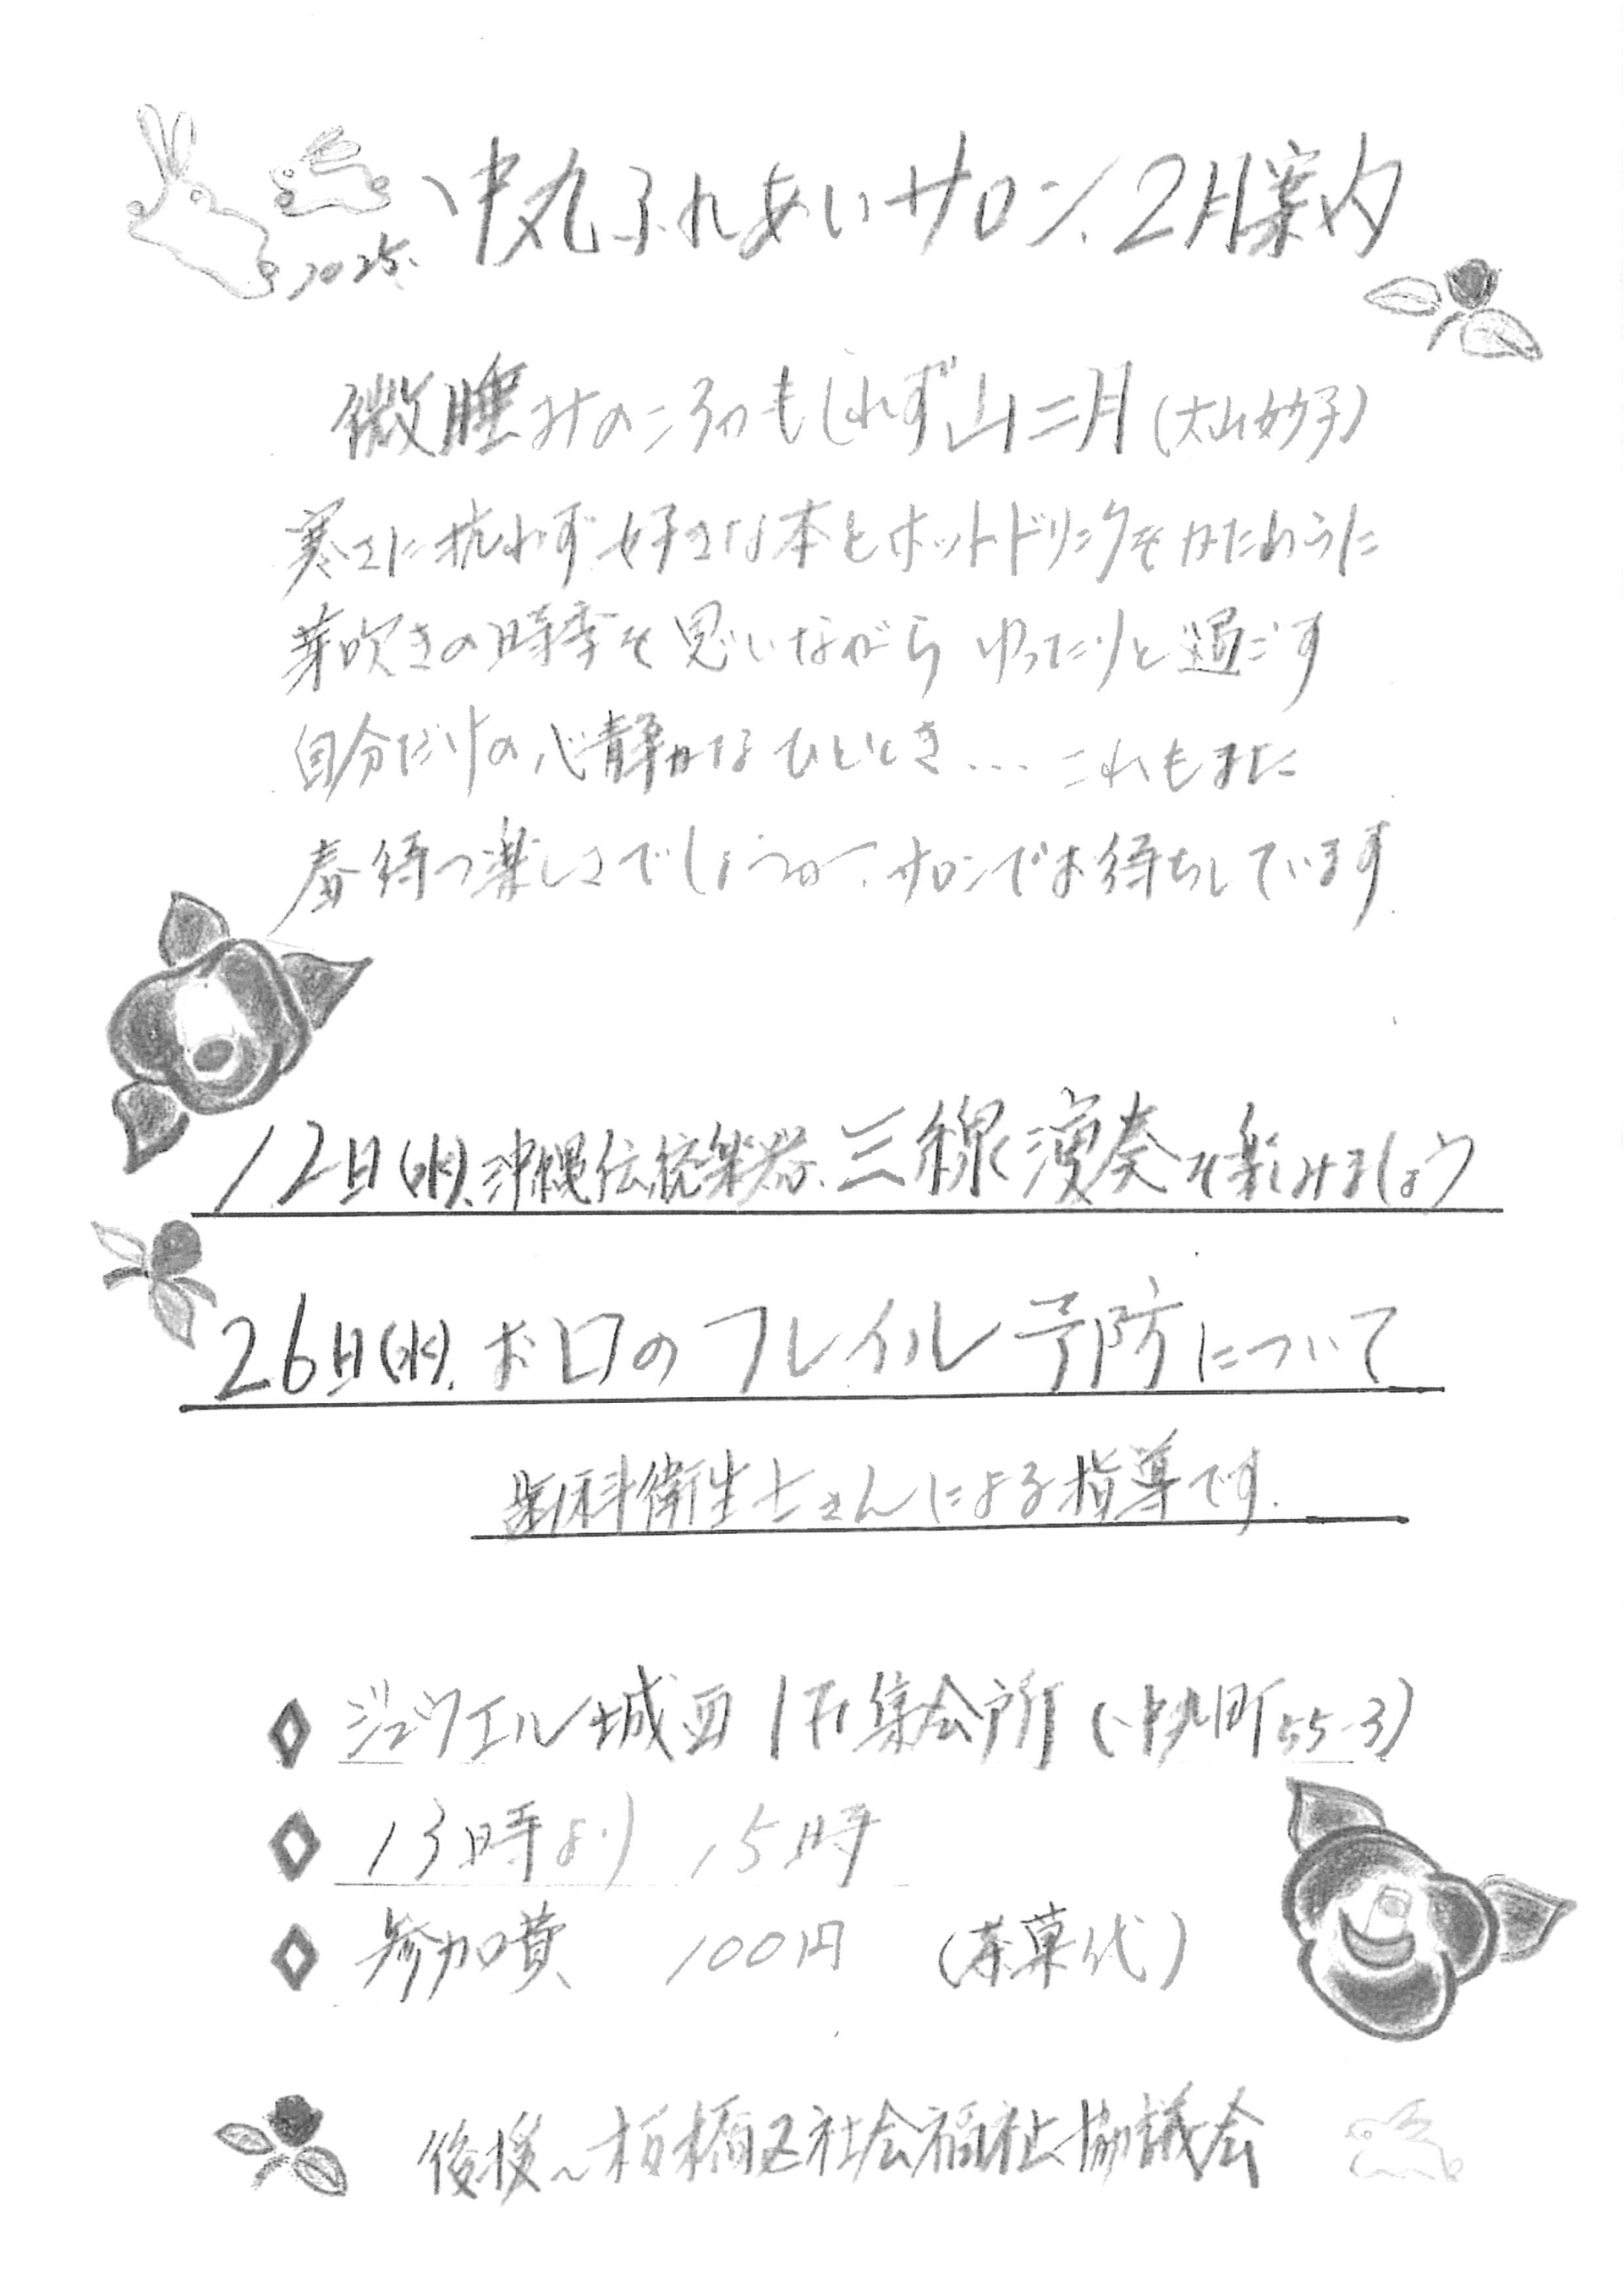 中丸ふれあいサロン 2月案内
2025.
微睡みのころかもしれず山二月(大山妙子)
寒さに抗わず 好きな本とホットドリンクをかたわらに
芽吹きの時季を思いながら ゆったりと過ごす
自分だけの心静かなひととき… これもまた
春待つ楽しさでしょうか、サロンでお待ちしています
12日(水).沖縄伝統楽器、三線演奏を楽しみましょう
26日(水). お口のフレイル予防について
歯科衛生士さんによる指導です.
◇ ジュウエル城西 1F集会所(中丸町55-3)
◇ 13時より 15時
◇ 参加費 100円 (茶菓代)
後援~板橋区社会福祉協議会